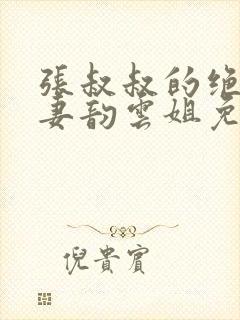 張叔叔的绝
妻韵雲姐免
倪貴賓